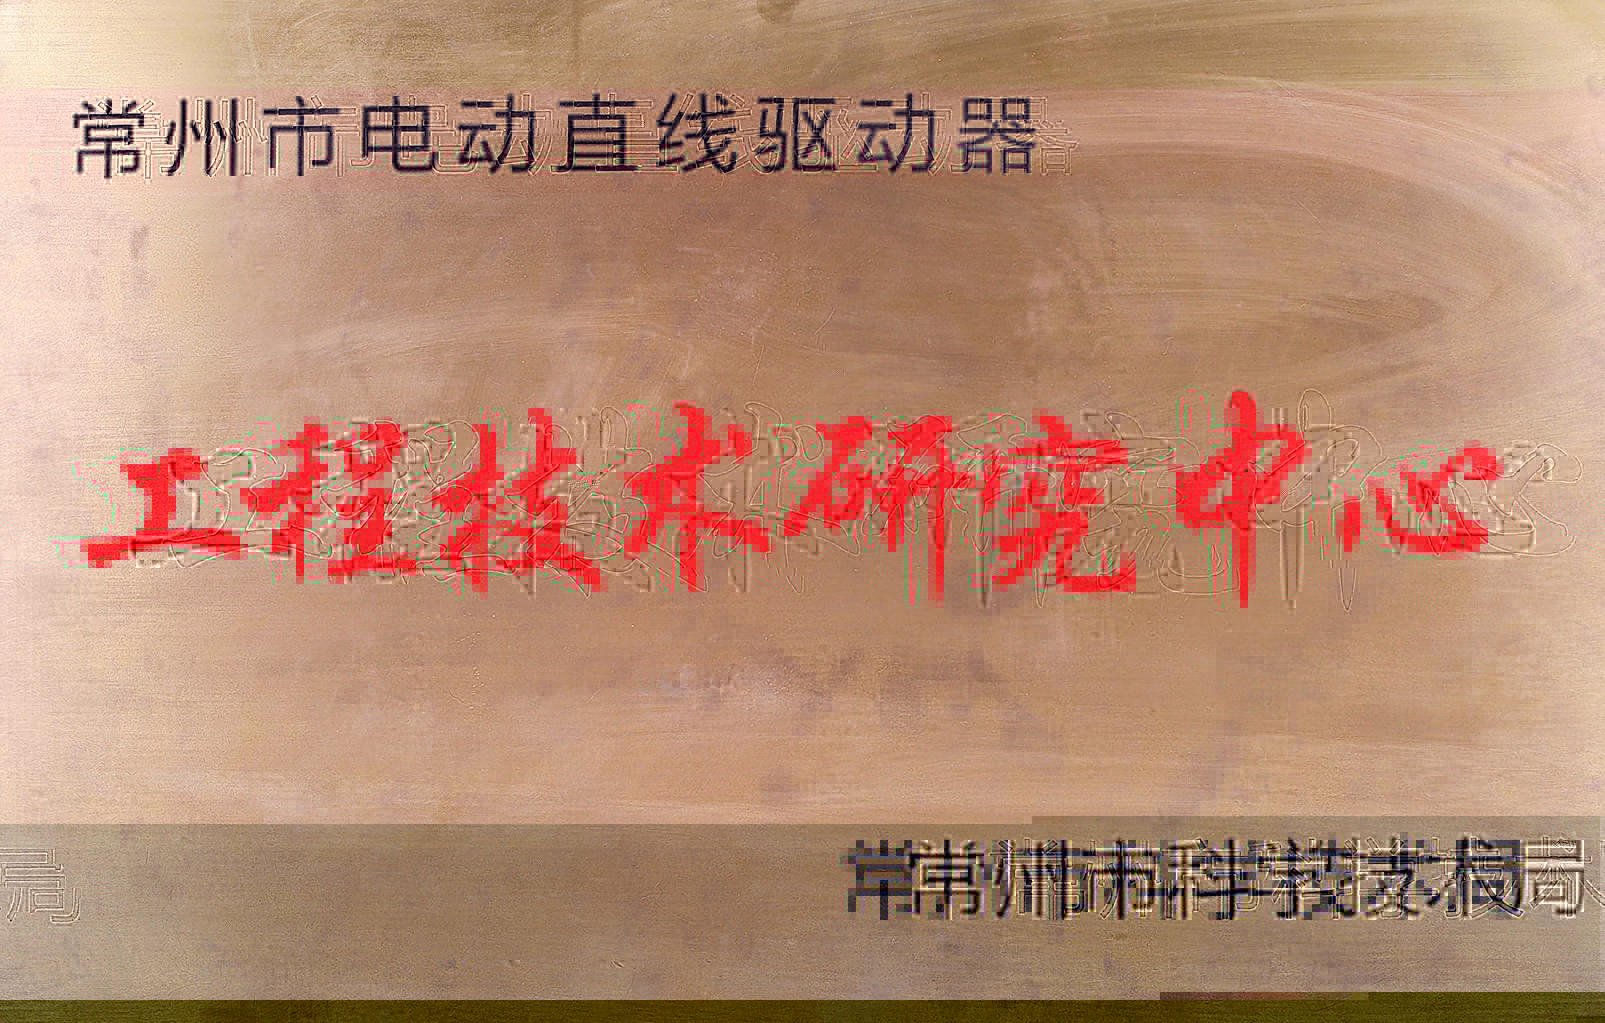 常州市电动直线驱动器
工程技术研究中心
常州市科学技术局